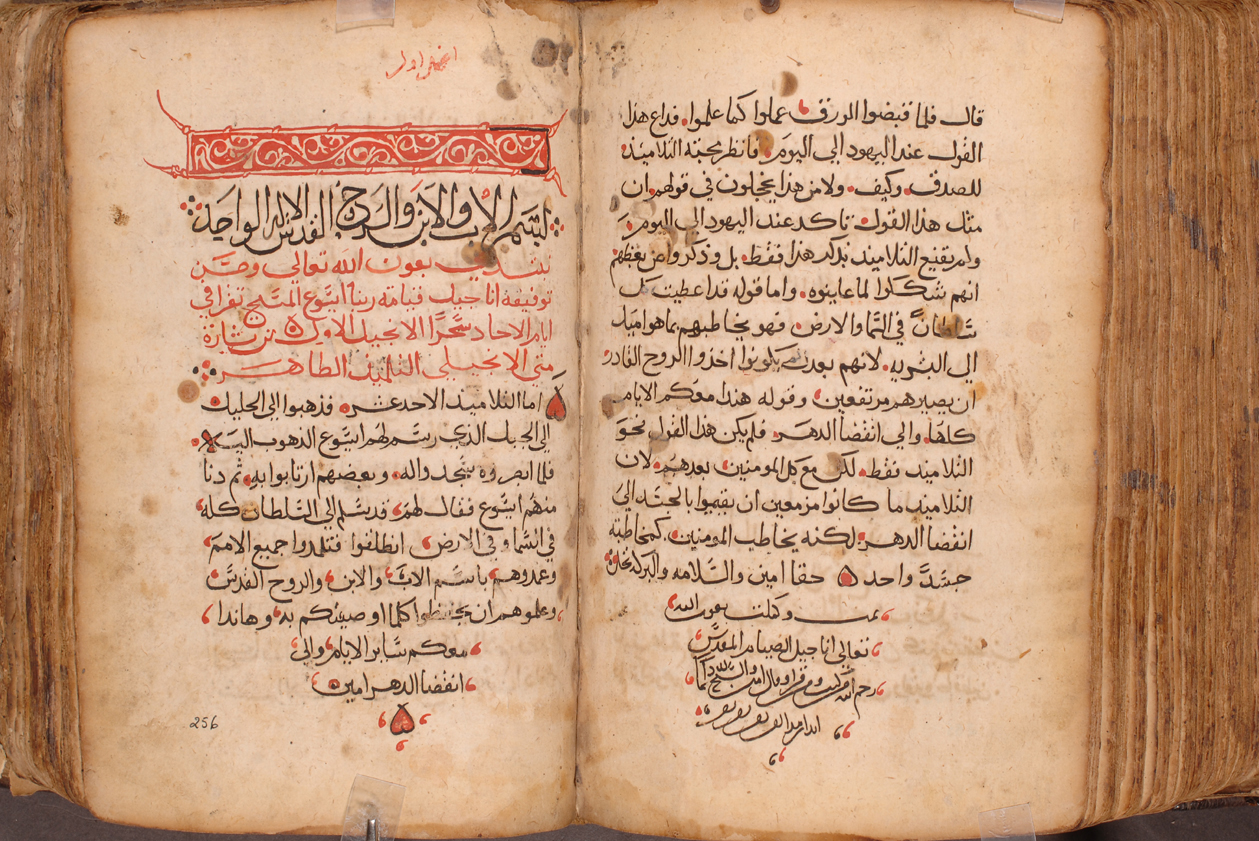 قال فلما قبضوا الورق عملوا كما علموا فداع هذا
القول عند اليهود الي اليوم فانظر محبة التلاميذ
للصدق وكيف ولا من هذا يخجلون في قولهم ان
مثل هذا القول تاكد عند اليهود الي اليوم
ولم تقنع التلاميذ بذكر هذا فقط بل وذكروا عن بعضهم
انهم شكوا لما عاينوه واما قوله قد اعطيت كل
سلطان في السما والارض فهو يخاطبهم بما هو اميل
الي البشرية لانهم بعد لم يكونوا اخذوا الروح القادر
ان يصيرهم مرتفعين وقوله هنذا معكم الايام
كلها والي انقضا الدهر فلم يكن هذا القول نحو
التلاميذ فقط لكن مع كل المومنين بعدهم لان
التلاميذ ما كانوا مزمعين ان يقيموا بالجسد الي
انقضا الدهر لكنه يخاطب المومنين كمخاطبة
جسد واحد حقا امين والسلامه والبركه
تمت وكملت بعون الله
تعالي اناجيل الصيام المقدس
رحم الله
فصل اول
بسم الاب والابن والروح القدس الاله الواحد
نبتدي بعون الله تعالي وحسن
توفيقه اناجيل قيامة ربنا ايسوع المسيح تقرا في
ايام الاحاد سحرا الانجيل الاول من بشارة
متي الانجيلي التلميذ الطاهر
اما التلاميذ الاحد عشر فذهبوا الي الجليل
الي الجبل الذي رسم لهم ايسوع الذهوب اليه
فلما ابصروه سجدوا له وبعضهم ارتابوا به ثم دنا
منهم ايسوع فقال لهم قد سلم الي السلطان كله
في السما وفي الارض انطلقوا فتلمدوا جميع الامم
وعمدوهم باسم الاب والابن والروح القدس
وعلموهم ان يحفظوا كلما اوصيتكم به وها نذا
معكم سائر الايام والي
انقضا الدهر امين
256